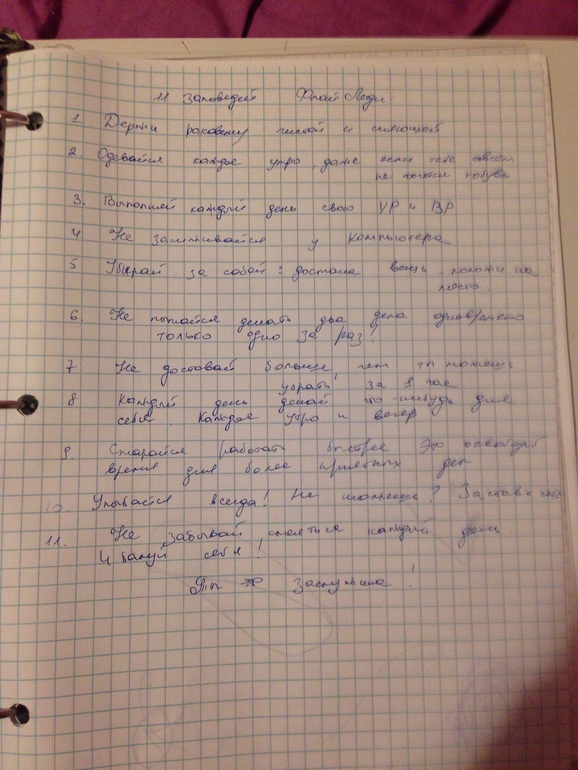 11 Заповедей Флай Леди.
1 Держи раковину чистой и сияющей
2. Одевайся каждое утро, даже если тебе совсем
не хочется
3. Выполняй каждый день свою УР и ВР
4 Не засиживайся у компьютера
5 Убирай за собой: достала вещь - положи на
место.
6. Не пытайся делать два дела одновременно
только одно за раз!
7 Не доставай больше, чем ты можешь
убрать за 1 час
8 Каждый день делай что-нибудь для
себя. Каждое утро и вечер
9. Старайся работать быстрее Это освободит
время для более приятных дел
10. Улыбайся всегда! Не можешь? Заставь себя
11. Не забывай смеяться каждый день.
И балуй себя!
Ты заслужила!